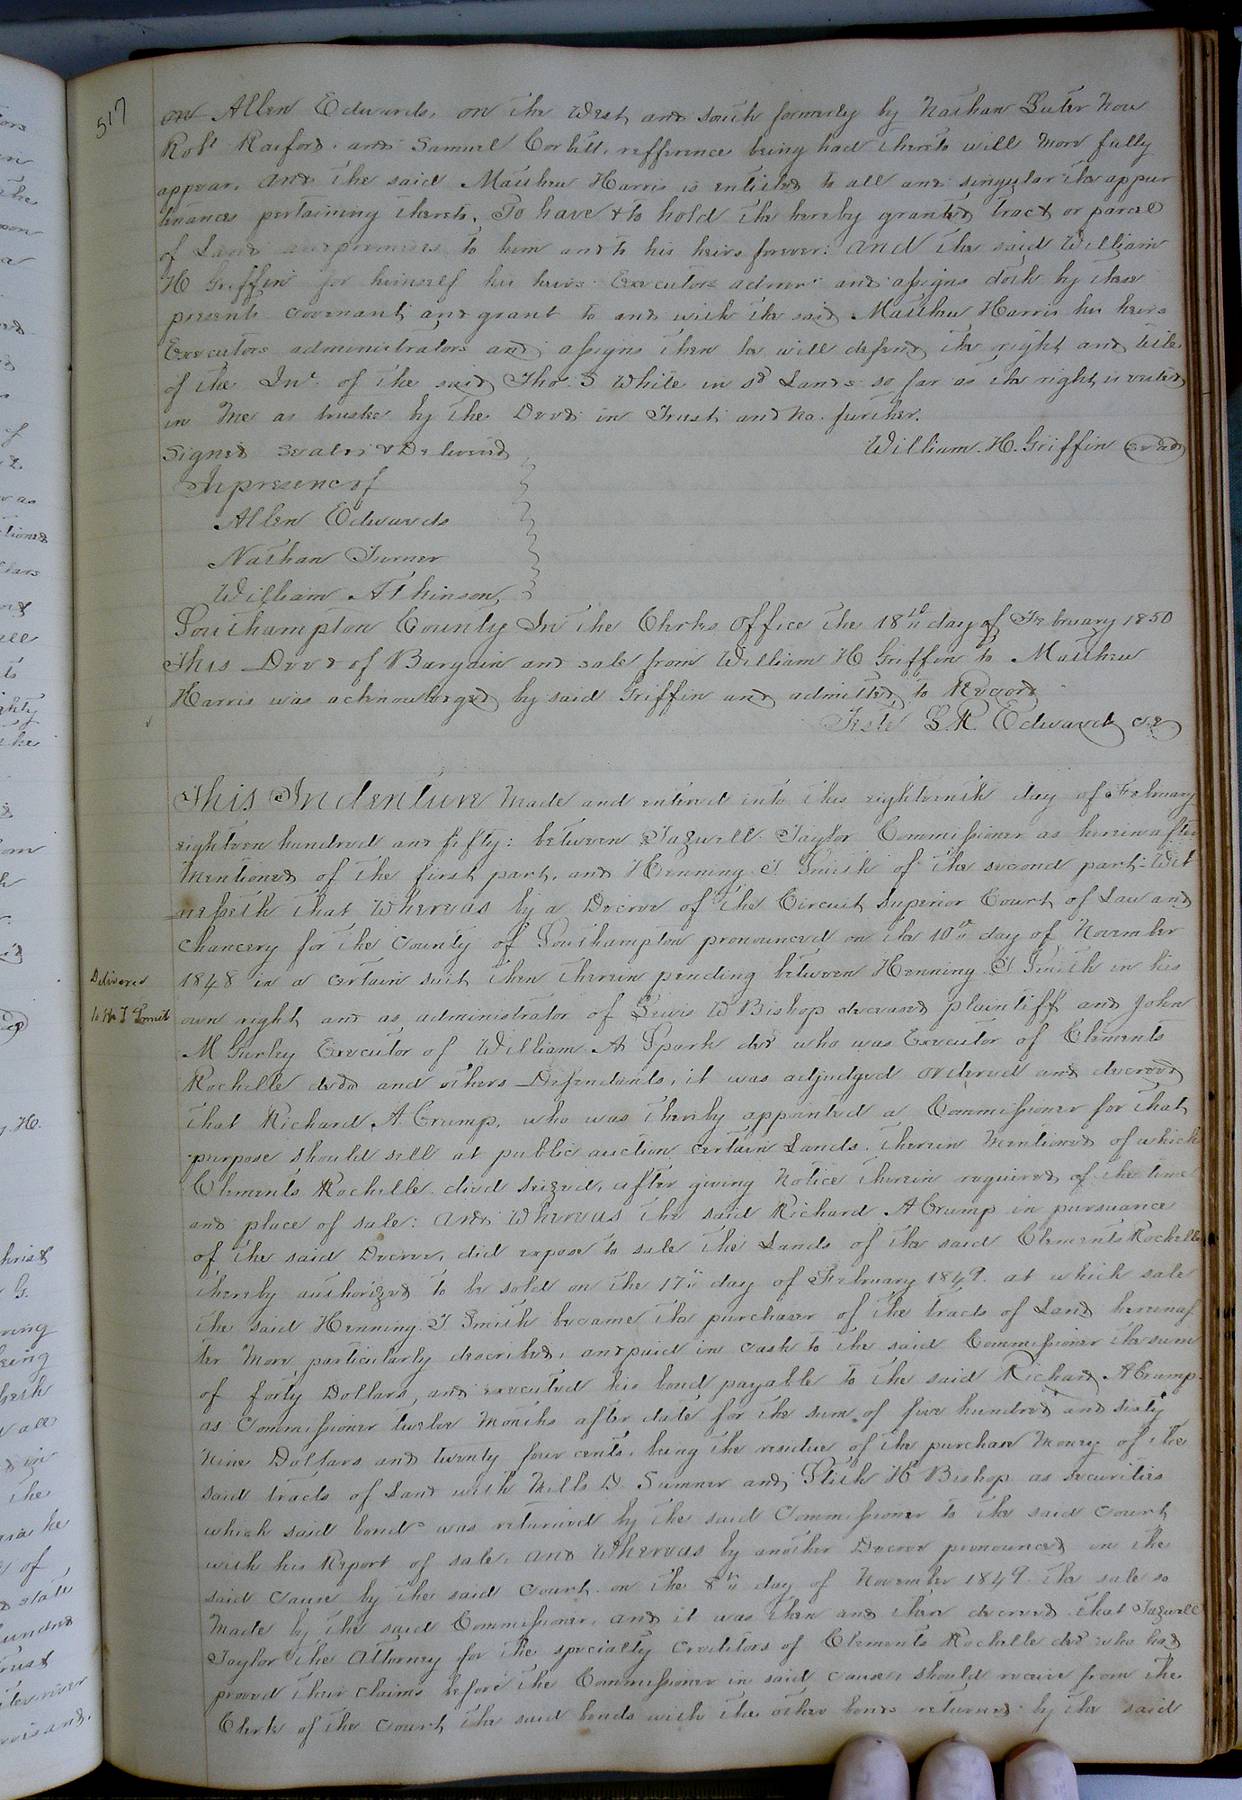 517
on Allen Edwards, on the West, and South formerly by Nathan Suter Now
Robt Raiford and Samuel Corbett, refference being had thereto will More fully
appear. And the said Matthew Harris is entitled to all and singular the appur
tinances pertaining thereto, To have & to hold the hereby granted tract or parcel
of Land and premises to him and to his heirs forever: And the said William
H Griffin for himself his heirs Executors admrs and assigns doth by these
presents covenant, and grant to and with the said Matthew Harris his heirs
Executors administrators and assigns then he will defend the right and title
of the Int. of the said Tho: S White in sd Lands so far as the right is vested
in Me as trustee by the Deed in Trust and no further.
Signed Sealed & Delivered William. H. Griffin
In presence of
Allen Edwards
Nathan Turner
William Atkinson
Southampton County In the Clerks Office the 18th day of February 1850
This Deed of Bargain and sale from William H Griffin to Matthew
Harris was acknowledged by said Griffin and admitted to Record
Teste L. R. Edwards CC
This Indenture Made and entered into this eighteenth day of February
eighteen hundred and fifty: between Tazwell Taylor Commissioner as herein after
Mentioned of the first part, and Henning T Smith of the second part: Wit
nesseth that Whereas by a Decree of the Circuit Superior Court of Law and
Chancery for the County of Southampton pronounced on the 10th day of November
Delivered
to Hn T Smith
1848 in a certain suit then therein pending between Henning T Smith in his
own right and as administrator of Lewis W Bishop deceased plaintiff and John
M Gurley Executor of William A Spark decd who was Executor of Clements
Rochelle decd and others Defendants, it was adjudged ordered and decreed
that Richard A Crump, who was thereby appointed a Commissioner for that
purpose should sell at public auction certain Lands therein Mentioned of which
Clements Rochelle died seized, after giving Notice therein required of the time
and place of sale: And Whereas the said Richard A Crump in pursuance
of the said Decree, did expose to sale the Lands of the said Clements Rochelle
thereby authorized to be sold on the 17th day of February 1849. at which sale
the said Henning T Smith became the purchaser of the tracts of Land hereinaf
ter More particularly described, and paid in cash to the said Commissioner the sum
of forty Dollars, and executed his bond payable to the said Richard A Crump
as Commissioner twelve Months after date for the sum of five hundred and sixty
Nine Dollars and twenty four cents, being the residue of the purchase Money of the
said tracts of Land with Mills D Sumner and Stith H Bishop as securities
which said bond was returned by the said Commissioner to the said Court
with his Report of sale, And Whereas by another Decree pronounced in the
said cause by the said Court on the 8th day of November 1849 the sale so
Made by the said Commissioner, and it was then and there decreed that Tazwell
Taylor the Attorney for the specialty Creditors of Clements Rochelle decd who had
proved their claims before the Commissioner in said cause, should receive from the
Clerk of the Court the said bonds with the other bonds returned by the said